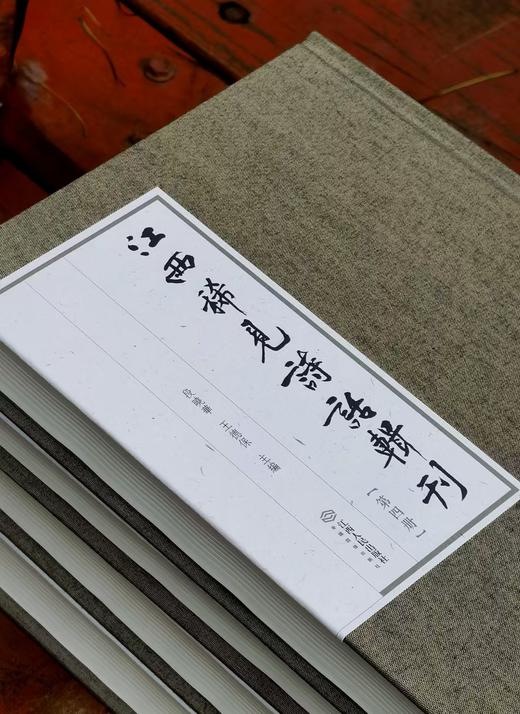 江西稀見詩話輯刊
【第四册】
段曉華 王德保 主編
江西人民出版社